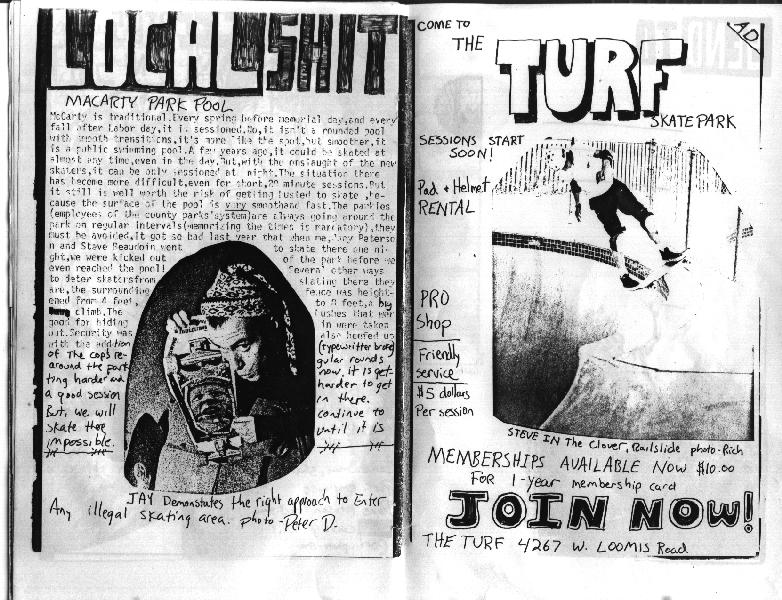 LOCAL SHIT
MACARTY PARK POOL
McCarty is traditional.Every spring before memorial day,and every
fall after Labor day,it is sessioned.No,it isn't a rounded pool
with smooth transitions,it's more like the spot,but smoother,it
is a public swimming pool.A few years ago,it could be skated at
almost any time,even in the day.But,with the onslaught of the new
skaters,it can only be sessioned at night.The situation there
has become more difficult,even for short,20 minute sessions.But
it still is well worth the risk of getting busted to skate ,be-
cause the surface of the pool is very smooth and fast.The parkies
(employees of the county parks system)are always going around the
park on regular intervals(memorizing the times is mandatory),they
must be avoided.it got so bad last year that when me,Jay Peterso
n and Steve Beaudoin went to skate there one ni-
ght,we were kicked out of the park before we
even reached the pool! Several other ways
to deter skaters from skating there they
are,the surrounding fence was height-
ened from 4 feet, to 8 feet,a big
climb.The bushes that wer
good for hiding in were taken
out.Security was also beefed up
with the addition (typewritter broke)
of the cops re- gular rounds
around the park now. it is get-
ting harder and harder to get
a good session in there.
But, we will continue to
skate there until it is
impossible.
JAY Demonstates the right approach to Enter
Any illegal skating area. photo - Peter D.
COME TO
THE TURF
AD
SKATE PARK
SESSIONS START
SOON!
Pad + Helmet
RENTAL
PRO
Shop
Friendly
service
$5 dollars
Per session
STEVE IN The Clover, Railslide photo-Rich
MEMBERSHIPS AVAILABLE NOW $10.00
FOR 1-year membership card
JOIN NOW!
THE TURF 4267 W. LOOMIS Road